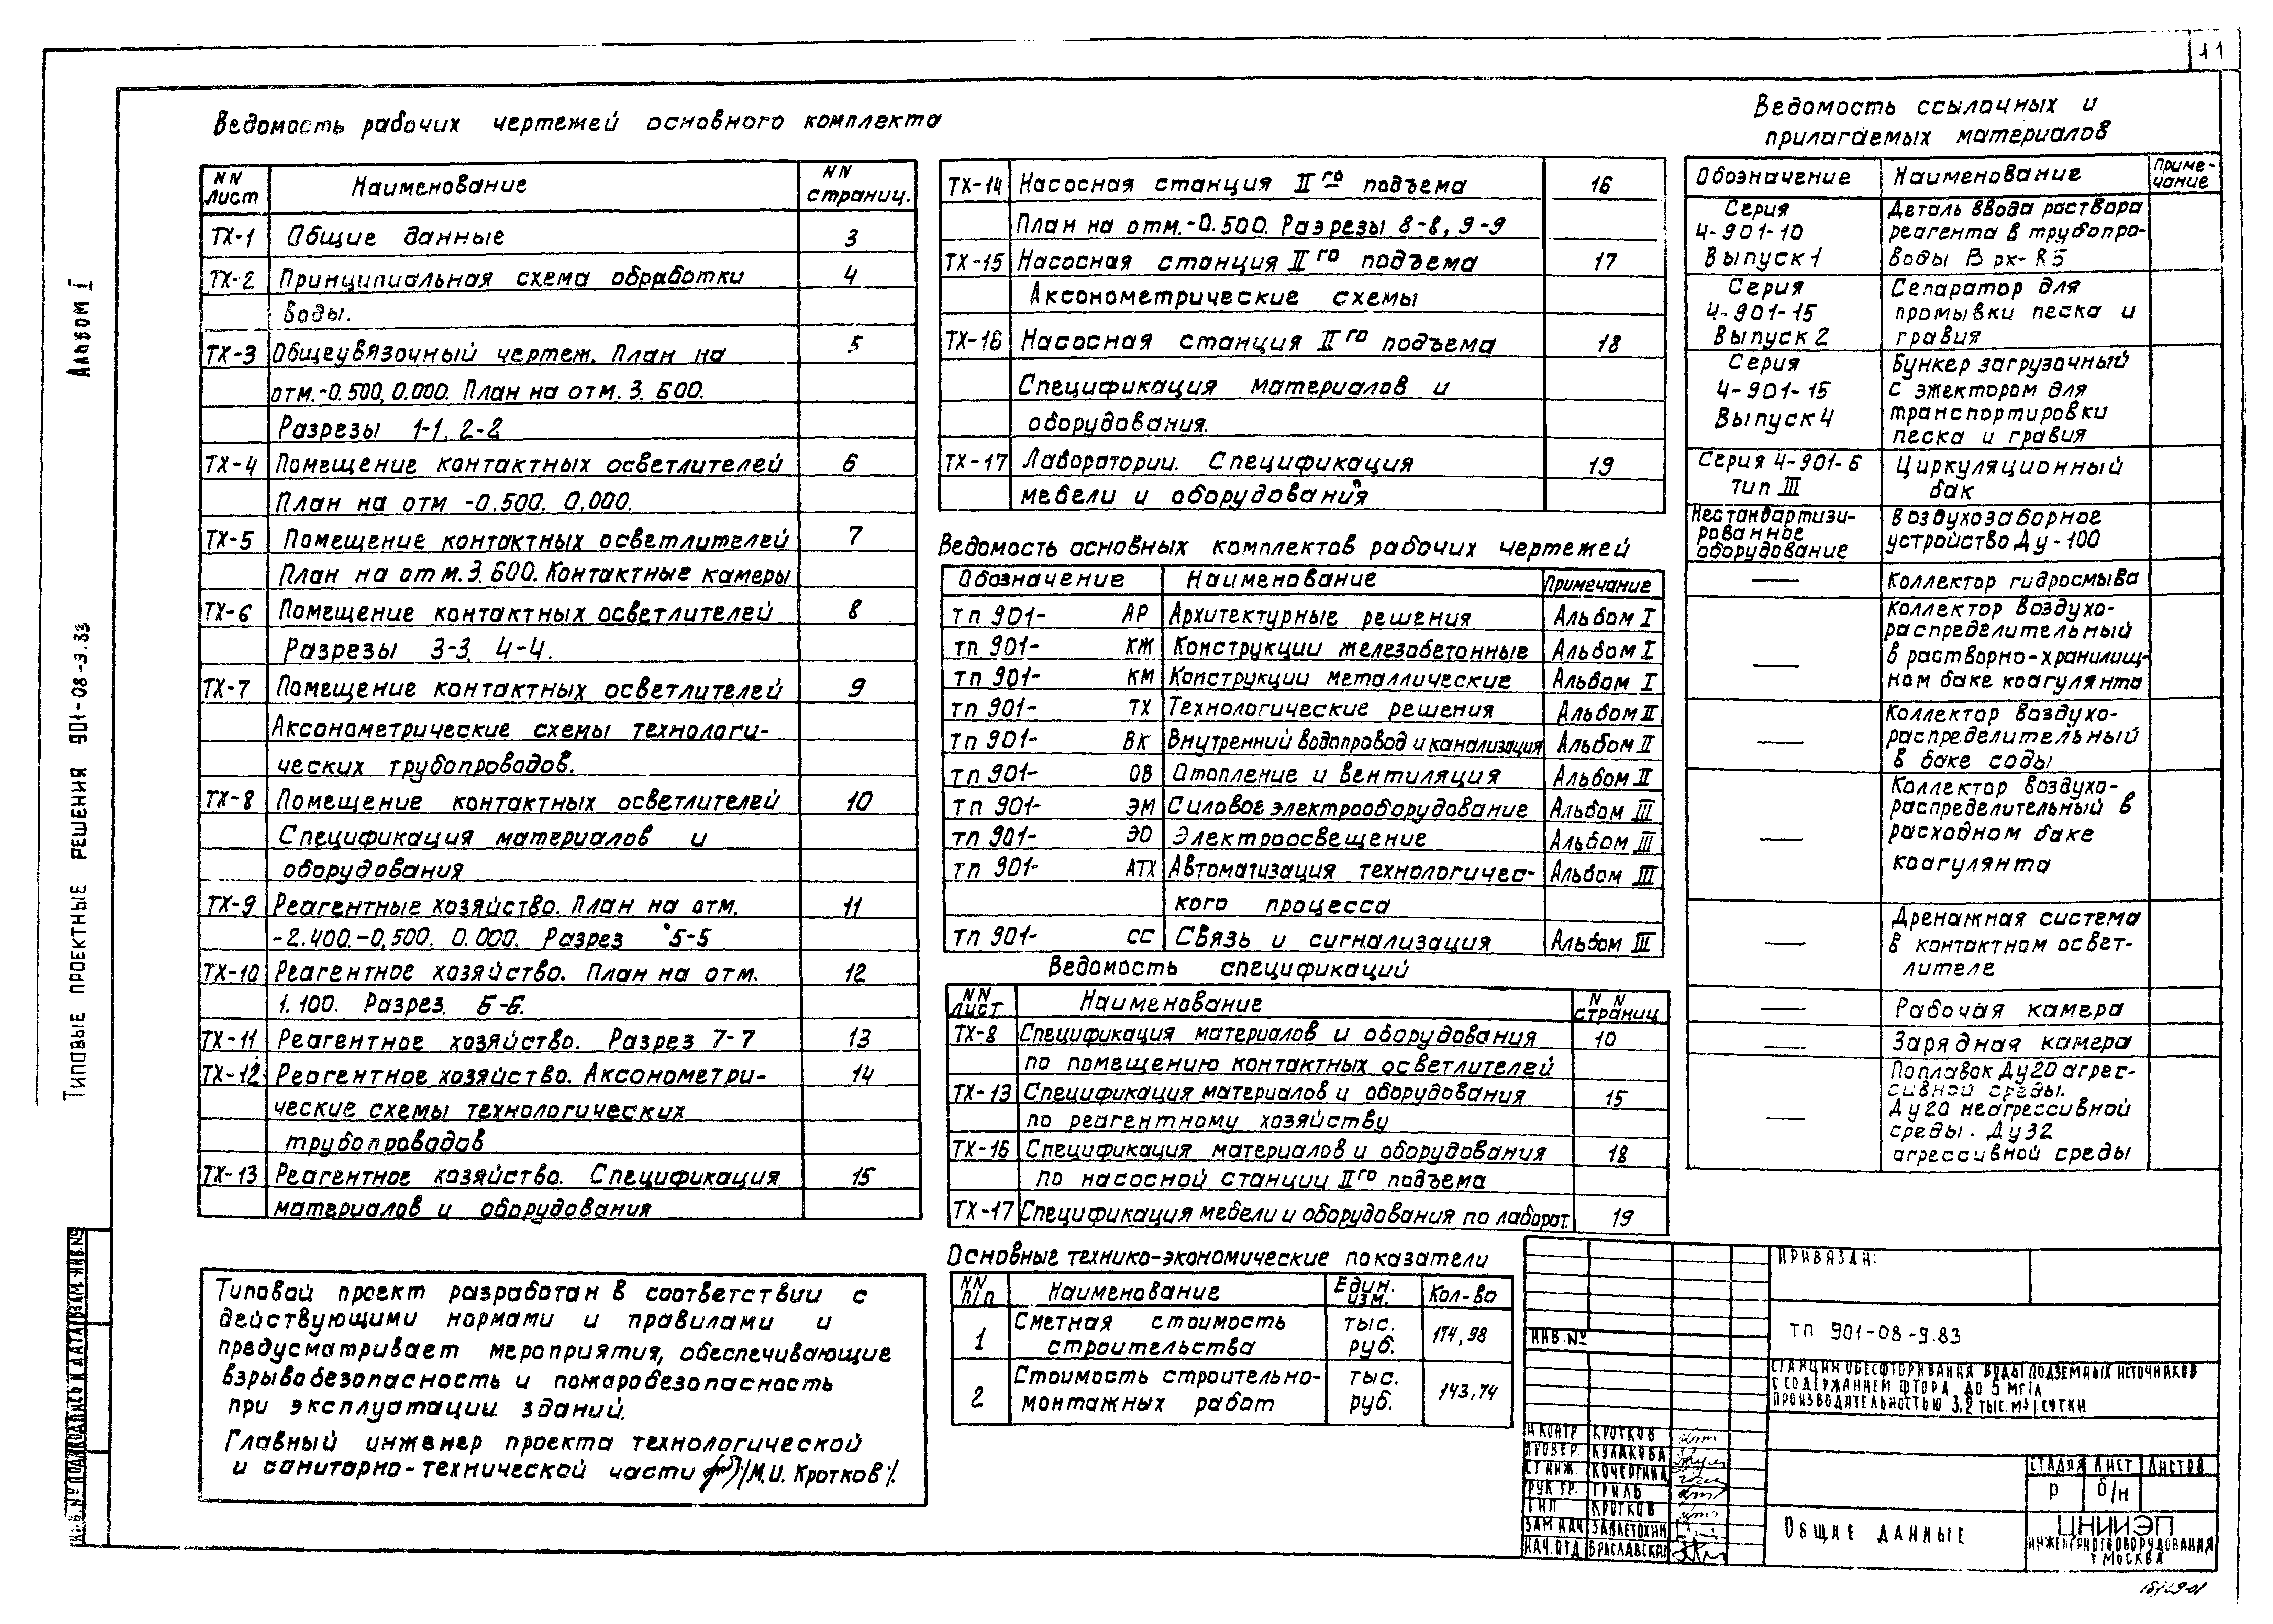 11
Альбом I
Типовые проектные решения 901-08-9.83
Ведомость рабочих чертежей основного комплекта
NN лист | Наименование | NN страниц.
ТХ-1 | Общие данные | 3
ТХ-2 | Принципиальная схема обработки | 4
воды.
ТХ-3 | Общеувязочный чертеж. План на | 5
отм.-0.500, 0.000. План на отм. 3.600.
Разрезы 1-1, 2-2
ТХ-4 | Помещение контактных осветлителей | 6
План на отм -0.500. 0,000.
ТХ-5 | Помещение контактных осветлителей | 7
План на отм. 3.600. Контактные камеры
ТХ-6 | Помещение контактных осветлителей | 8
Разрезы 3-3, 4-4.
ТХ-7 | Помещение контактных осветлителей | 9
Аксонометрические схемы технологи-
ческих трубопроводов.
ТХ-8 | Помещение контактных осветлителей | 10
Спецификация материалов и
оборудования
ТХ-9 | Реагентные хозяйство. План на отм. | 11
-2.400.-0,500. 0.000. Разрез 5-5
ТХ-10 | Реагентное хозяйство. План на отм. | 12
1.100. Разрез. 6-6.
ТХ-11 | Реагентное хозяйство. Разрез 7-7 | 13
ТХ-12 | Реагентное хозяйство. Аксонометри- | 14
ческие схемы технологических
трубопроводов
ТХ-13 | Реагентное хозяйство. Спецификация | 15
материалов и оборудования
ТХ-14 | Насосная станция II го подъема | 16
План на отм.-0.500. Разрезы 8-8, 9-9
ТХ-15 | Насосная станция II го подъема | 17
Аксонометрические схемы
ТХ-16 | Насосная станция II го подъема | 18
Спецификация материалов и
оборудования.
ТХ-17 | Лаборатории. Спецификация | 19
мебели и оборудования
Ведомость основных комплектов рабочих чертежей
Обозначение | Наименование | Примечание
тп 901- АР | Архитектурные решения | Альбом I
тп 901- КЖ | Конструкции железобетонные | Альбом I
тп 901- КМ | Конструкции металлические | Альбом I
тп 901- ТХ | Технологические решения | Альбом II
тп 901- ВК | Внутренний водопровод и канализация | Альбом II
тп 901- ОВ | Отопление и вентиляция | Альбом II
тп 901- ЭМ | Силовое электрооборудование | Альбом III
тп 901- ЭО | Электроосвещение | Альбом III
тп 901- АТХ | Автоматизация технологичес- | Альбом III
кого процесса
тп 901- СС | Связь и сигнализация | Альбом III
Ведомость спецификаций
NN лист | Наименование | NN страниц
ТХ-8 | Спецификация материалов и оборудования | 10
по помещению контактных осветлителей
ТХ-13 | Спецификация материалов и оборудования | 15
по реагентному хозяйству
ТХ-16 | Спецификация материалов и оборудования | 18
по насосной станции II го подъема
ТХ-17 | Спецификация мебели и оборудования по лаборат. | 19
Основные технико-экономические показатели
NN п/п | Наименование | Един. изм. | Кол-во
1 | Сметная стоимость строительства | тыс. руб. | 174,98
2 | Стоимость строительно-монтажных работ | тыс. руб. | 143,74
Ведомость ссылочных и
прилагаемых материалов
Обозначение | Наименование | Приме-чание
Серия | Деталь ввода раствора
4-901-10 | реагента в трубопро-
Выпуск 1 | воды В рк-R5
Серия | Сепаратор для
4-901-15 | промывки песка и
Выпуск 2 | гравия
Серия | Бункер загрузочный
4-901-15 | с эжектором для
Выпуск 4 | транспортировки
песка и гравия
Серия 4-901-6 | Циркуляционный
тип III | бак
Нестандартизи- | Воздухозаборное
рованное | устройство Ду-100
оборудование
— | Коллектор гидросмыва
Коллектор воздухо-
распределительный
— | в растворно-хранилищ-
ном баке коагулянта
Коллектор воздухо-
— | распределительный
в баке соды
Коллектор воздухо-
распределительный в
— | расходном баке
коагулянта
Дренажная система
— | в контактном освет-
лителе
— | Рабочая камера
— | Зарядная камера
Поплавок Ду20 агрес-
сивной среды.
— | Ду20 неагрессивной
среды. Ду32
агрессивной среды
Типовой проект разработан в соответствии с
действующими нормами и правилами и
предусматривает мероприятия, обеспечивающие
взрывобезопасность и пожаробезопасность
при эксплуатации зданий.
Главный инженер проекта технологической
и санитарно-технической части /М.И. Кротков/.
Привязан:
Инв.№
тп 901-08-9.83
Станция обесфторивания воды подземных источников
с содержанием фтора до 5 мг/л
производительностью 3,2 тыс. м³/сутки
Н контр | Кротков
Провер. | Кулакова
Ст инж. | Кочергина
Рук гр. | Гриль
ГИП | Кротков
Зам нач | Заплетохин
Нач. отд | Браславская
Стадия | Лист | Листов
р | б/н
Общие данные
ЦНИИЭП
инженерного оборудования
г Москва
Инв.№подл | Подпись и дата | Взам. инв.№